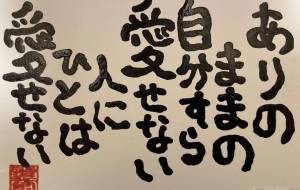 ありの
ままの
自分すら
愛せない
人に
ひとは
愛せない